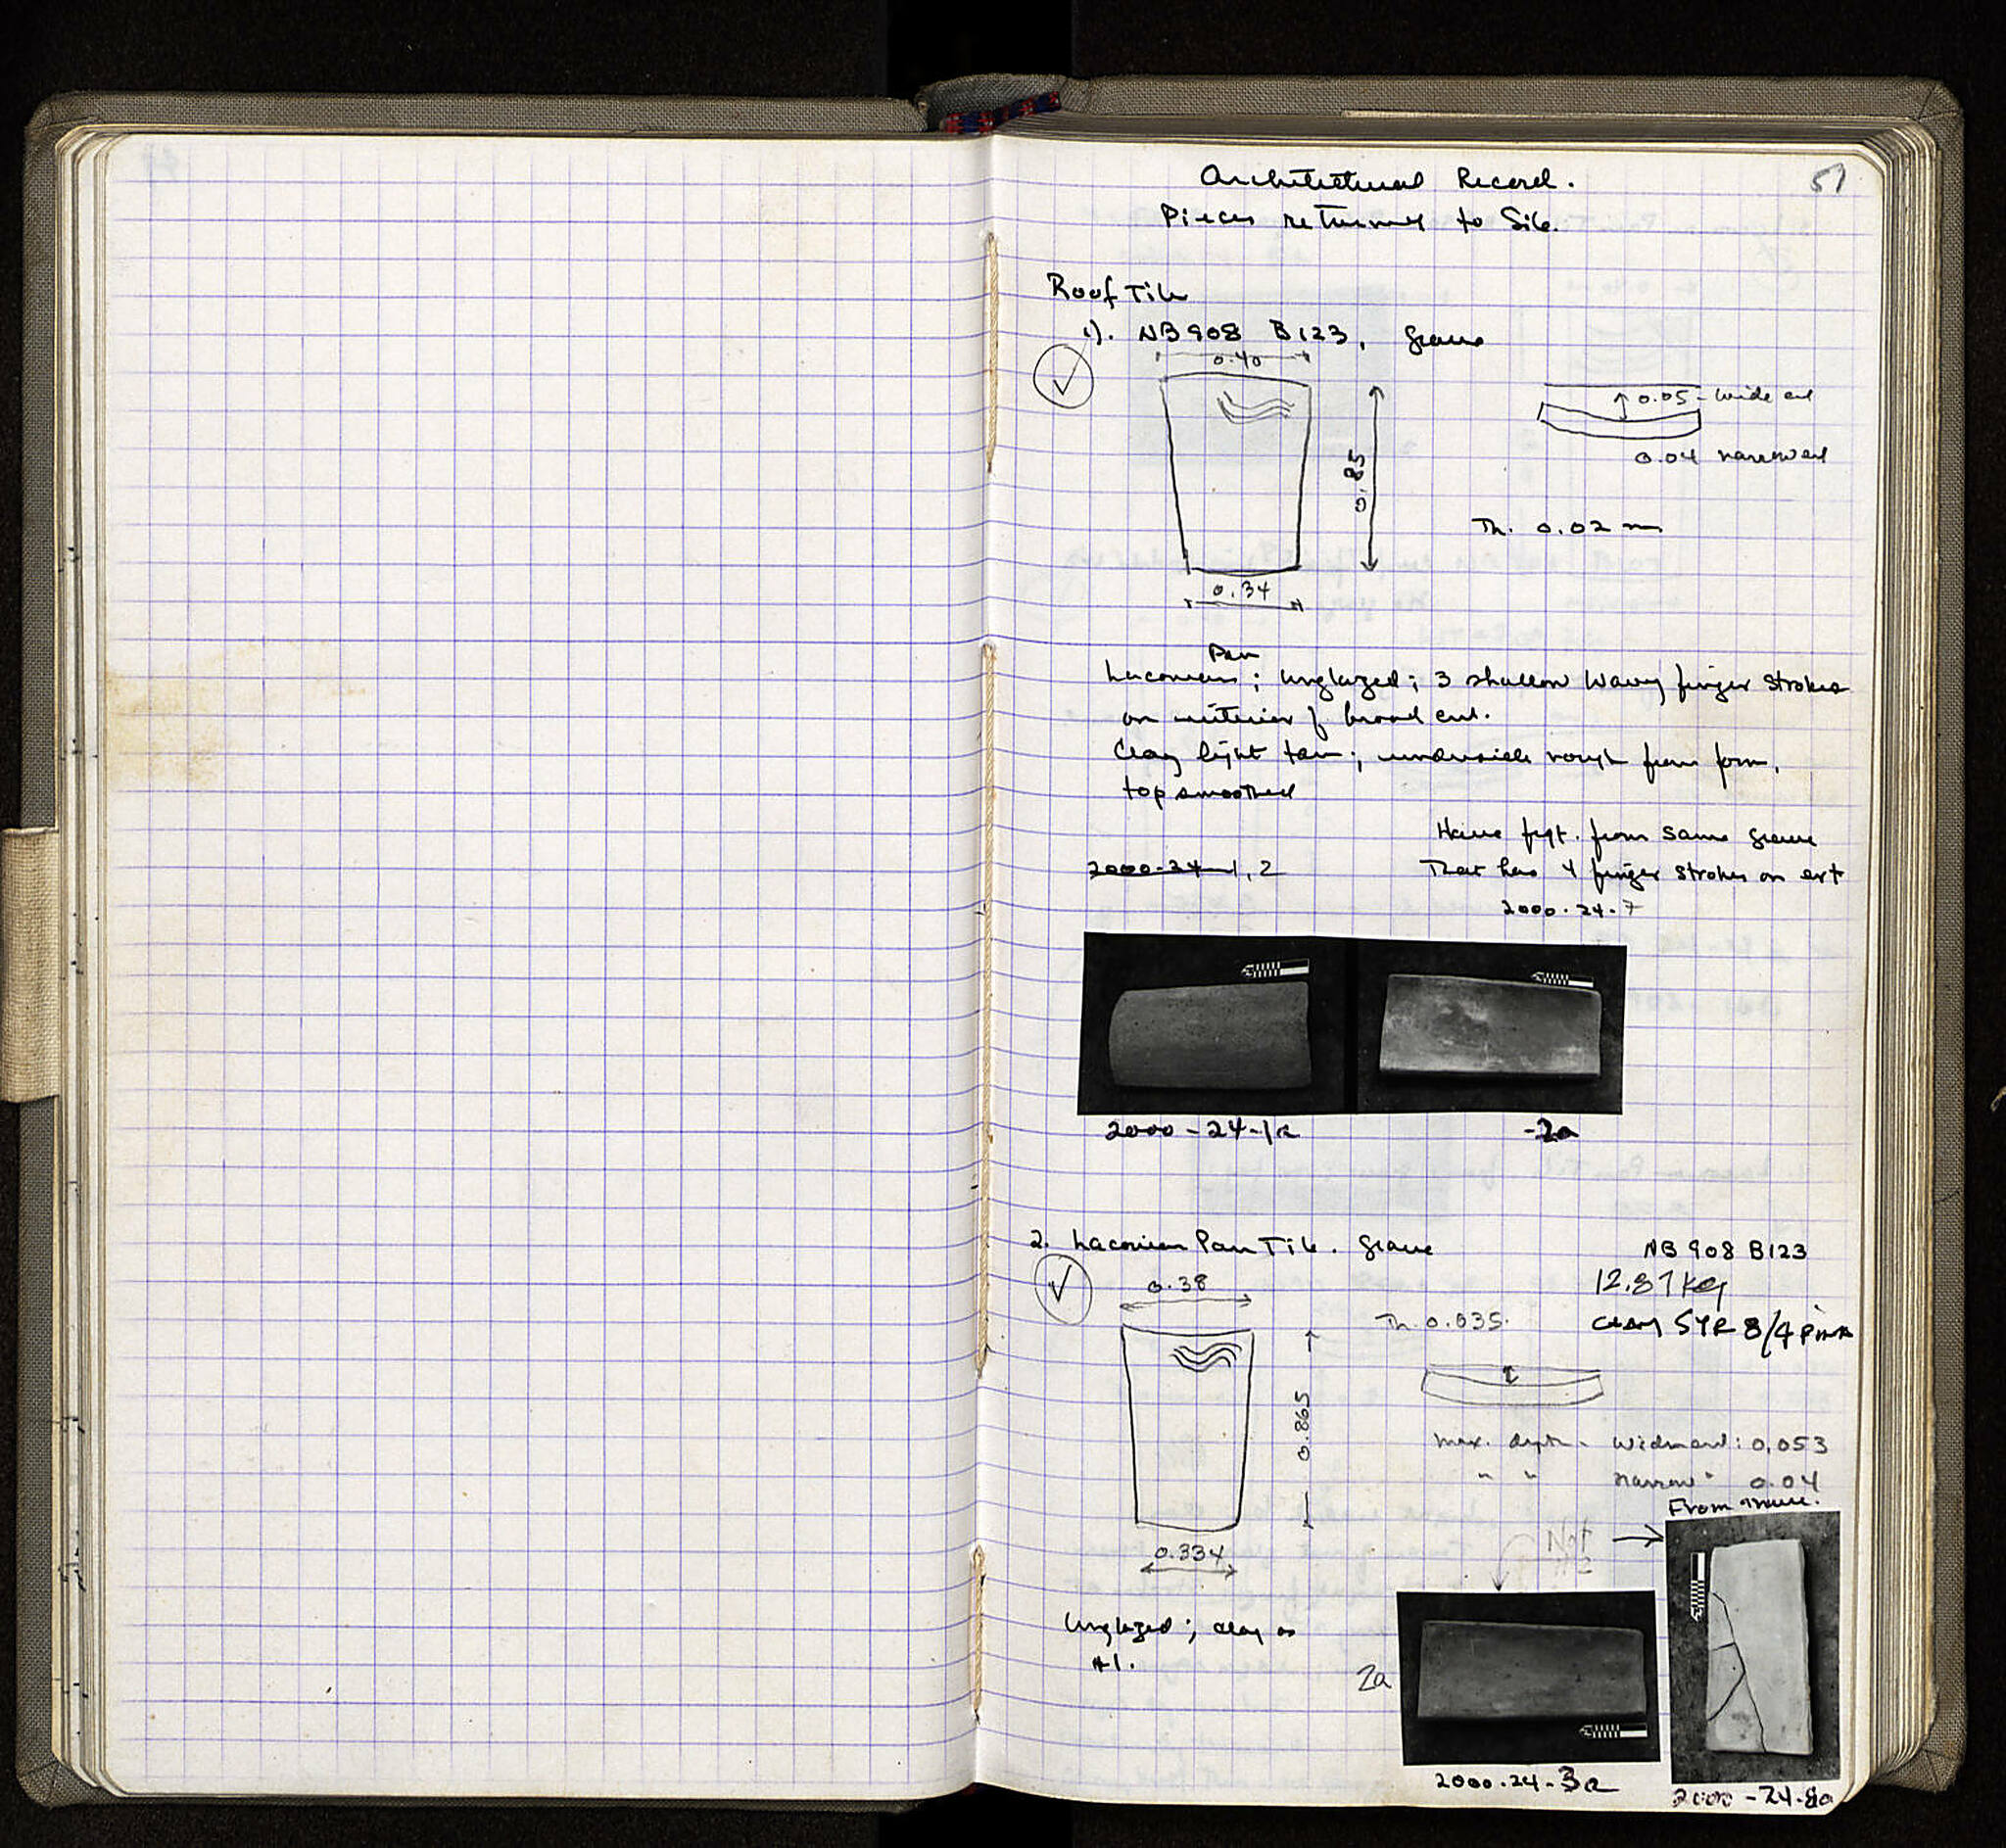 51
Architectural Record.
Pieces returned to Site.
Roof Tile
1). NB 908 B123, Grave
0.40
0.05 - wide end
0.04 narrow end
0.85
Th. 0.02 m
0.34
Pan
Laconian; unglazed; 3 shallow wavy finger strokes
on exterior of broad end.
Clay light tan; underside rough from form,
top smoothed
Have fgt. from same grave
that has 4 finger strokes on ext
2000-24-1, 2
2000-24-7
2000-24-1a
-2a
2. Laconian Pan Tile. Grave
NB 908 B123
12.87 kg
0.38
Th. 0.035.
Clay 5YR 8/4 Pink
0.865
max. depth - wide end: 0.053
" " narrow " 0.04
From grave.
Not
#2
0.334
Unglazed; clay as
#1.
2a
2000-24-3a
2000-24-8a